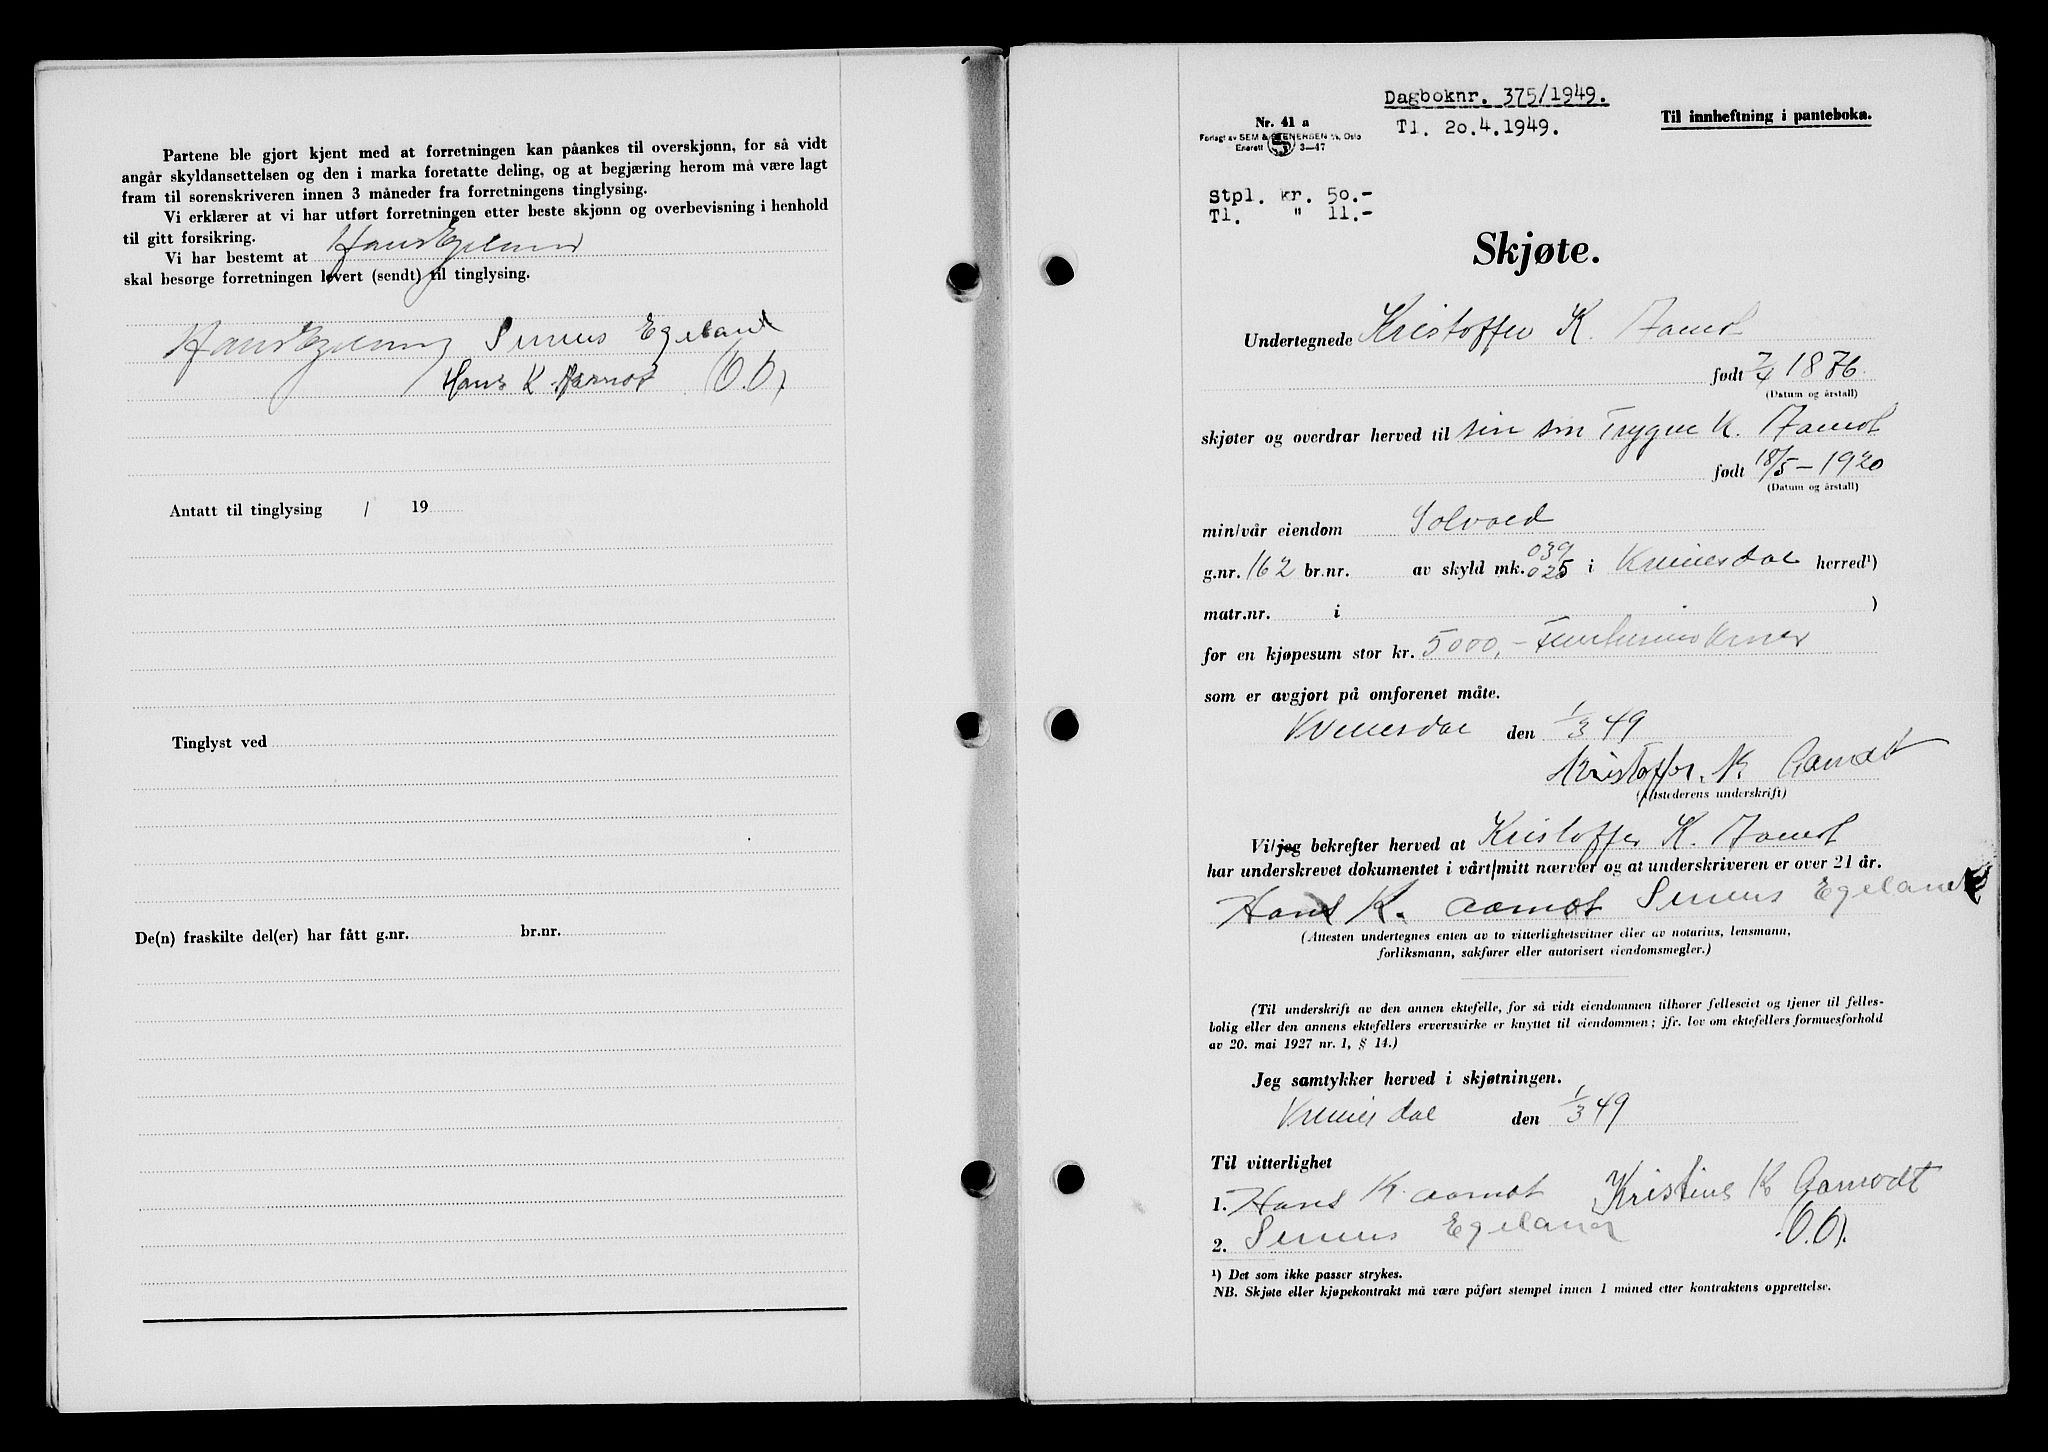 Partene ble gjort kjent med at forretningen kan påankes til overskjønn, for så vidt
angår skyldansettelsen og den i marka foretatte deling, og at begjæring herom må være lagt
fram til sorenskriveren innen 3 måneder fra forretningens tinglysing.
Vi erklærer at vi har utført forretningen etter beste skjønn og overbevisning i henhold
til gitt forsikring.
Vi har bestemt at Hans Egeland
skal besørge forretningen levert (sendt) til tinglysing.
Hans Egeland Sirenus Egeland
Hans K Aamot (O.O)
Antatt til tinglysing / 19
Tinglyst ved
De(n) fraskilte del(er) har fått g.nr. br.nr.
Dagboknr. 375/1949.
Tl. 20.4.1949.
Til innheftning i panteboka.
Nr. 41 a
Forlagt av SEM & STENERSEN A/S, Oslo
Enerett 3—47
Stpl. kr. 50.-
Tl. " 11.-
Skjøte.
Undertegnede Kristoffer K. Aamot
født 7/4 1876
(Datum og årstall)
skjøter og overdrar herved til sin søn Trygve K. Aamot
født 18/5 - 1920
(Datum og årstall)
min/vår eiendom Solvold
g.nr. 162 br.nr. av skyld mk. 039 025 i Kvinesdal herred¹)
matr.nr. i )
for en kjøpesum stor kr. 5000,- Femtusindkroner
som er avgjort på omforenet måte.
Kvinesdal den 1/3 49
Kristoffer K Aamodt
(Utstederens underskrift)
Vi/jeg bekrefter herved at Kristoffer K. Aamot
har underskrevet dokumentet i vårt/mitt nærvær og at underskriveren er over 21 år.
Hans K. Aamot Sirenus Egeland
(Attesten undertegnes enten av to vitterlighetsvitner eller av notarius, lensmann,
forliksmann, sakfører eller autorisert eiendomsmegler.)
(Til underskrift av den annen ektefelle, for så vidt eiendommen tilhører felleseiet og tjener til felles-
bolig eller den annens ektefellers ervervsvirke er knyttet til eiendommen; jfr. lov om ektefellers formuesforhold
av 20. mai 1927 nr. 1, § 14.)
Jeg samtykker herved i skjøtningen.
Kvinesdal den 1/3 49
Til vitterlighet
1. Hans K. Aamot Kristine K Aamodt
2. Sirenus Egeland (O.O).
¹) Det som ikke passer strykes.
NB. Skjøte eller kjøpekontrakt må være påført stempel innen 1 måned etter kontraktens opprettelse.